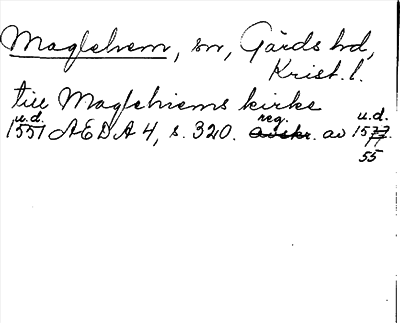 Maglehem, sn, Gärds hd,
Krist. l.
till Maglehiems kirke
u.d. reg. u.d.
1551 AEDA 4, s. 320. avskr. av 1577.
77
55